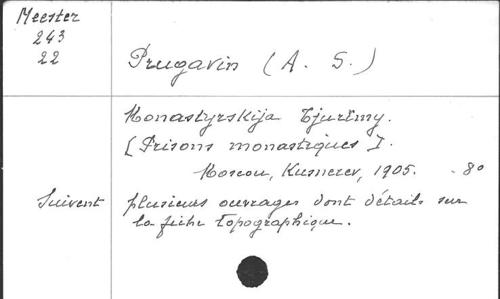 Meester
243
22
Prugavin (A. S.)
Monastyrskija Tjur'my.
[Prisons monastiques].
Moscou, Kusnerev, 1905. - 8°
Suivent plusieurs ouvrages dont détails sur
la fiche topographique.